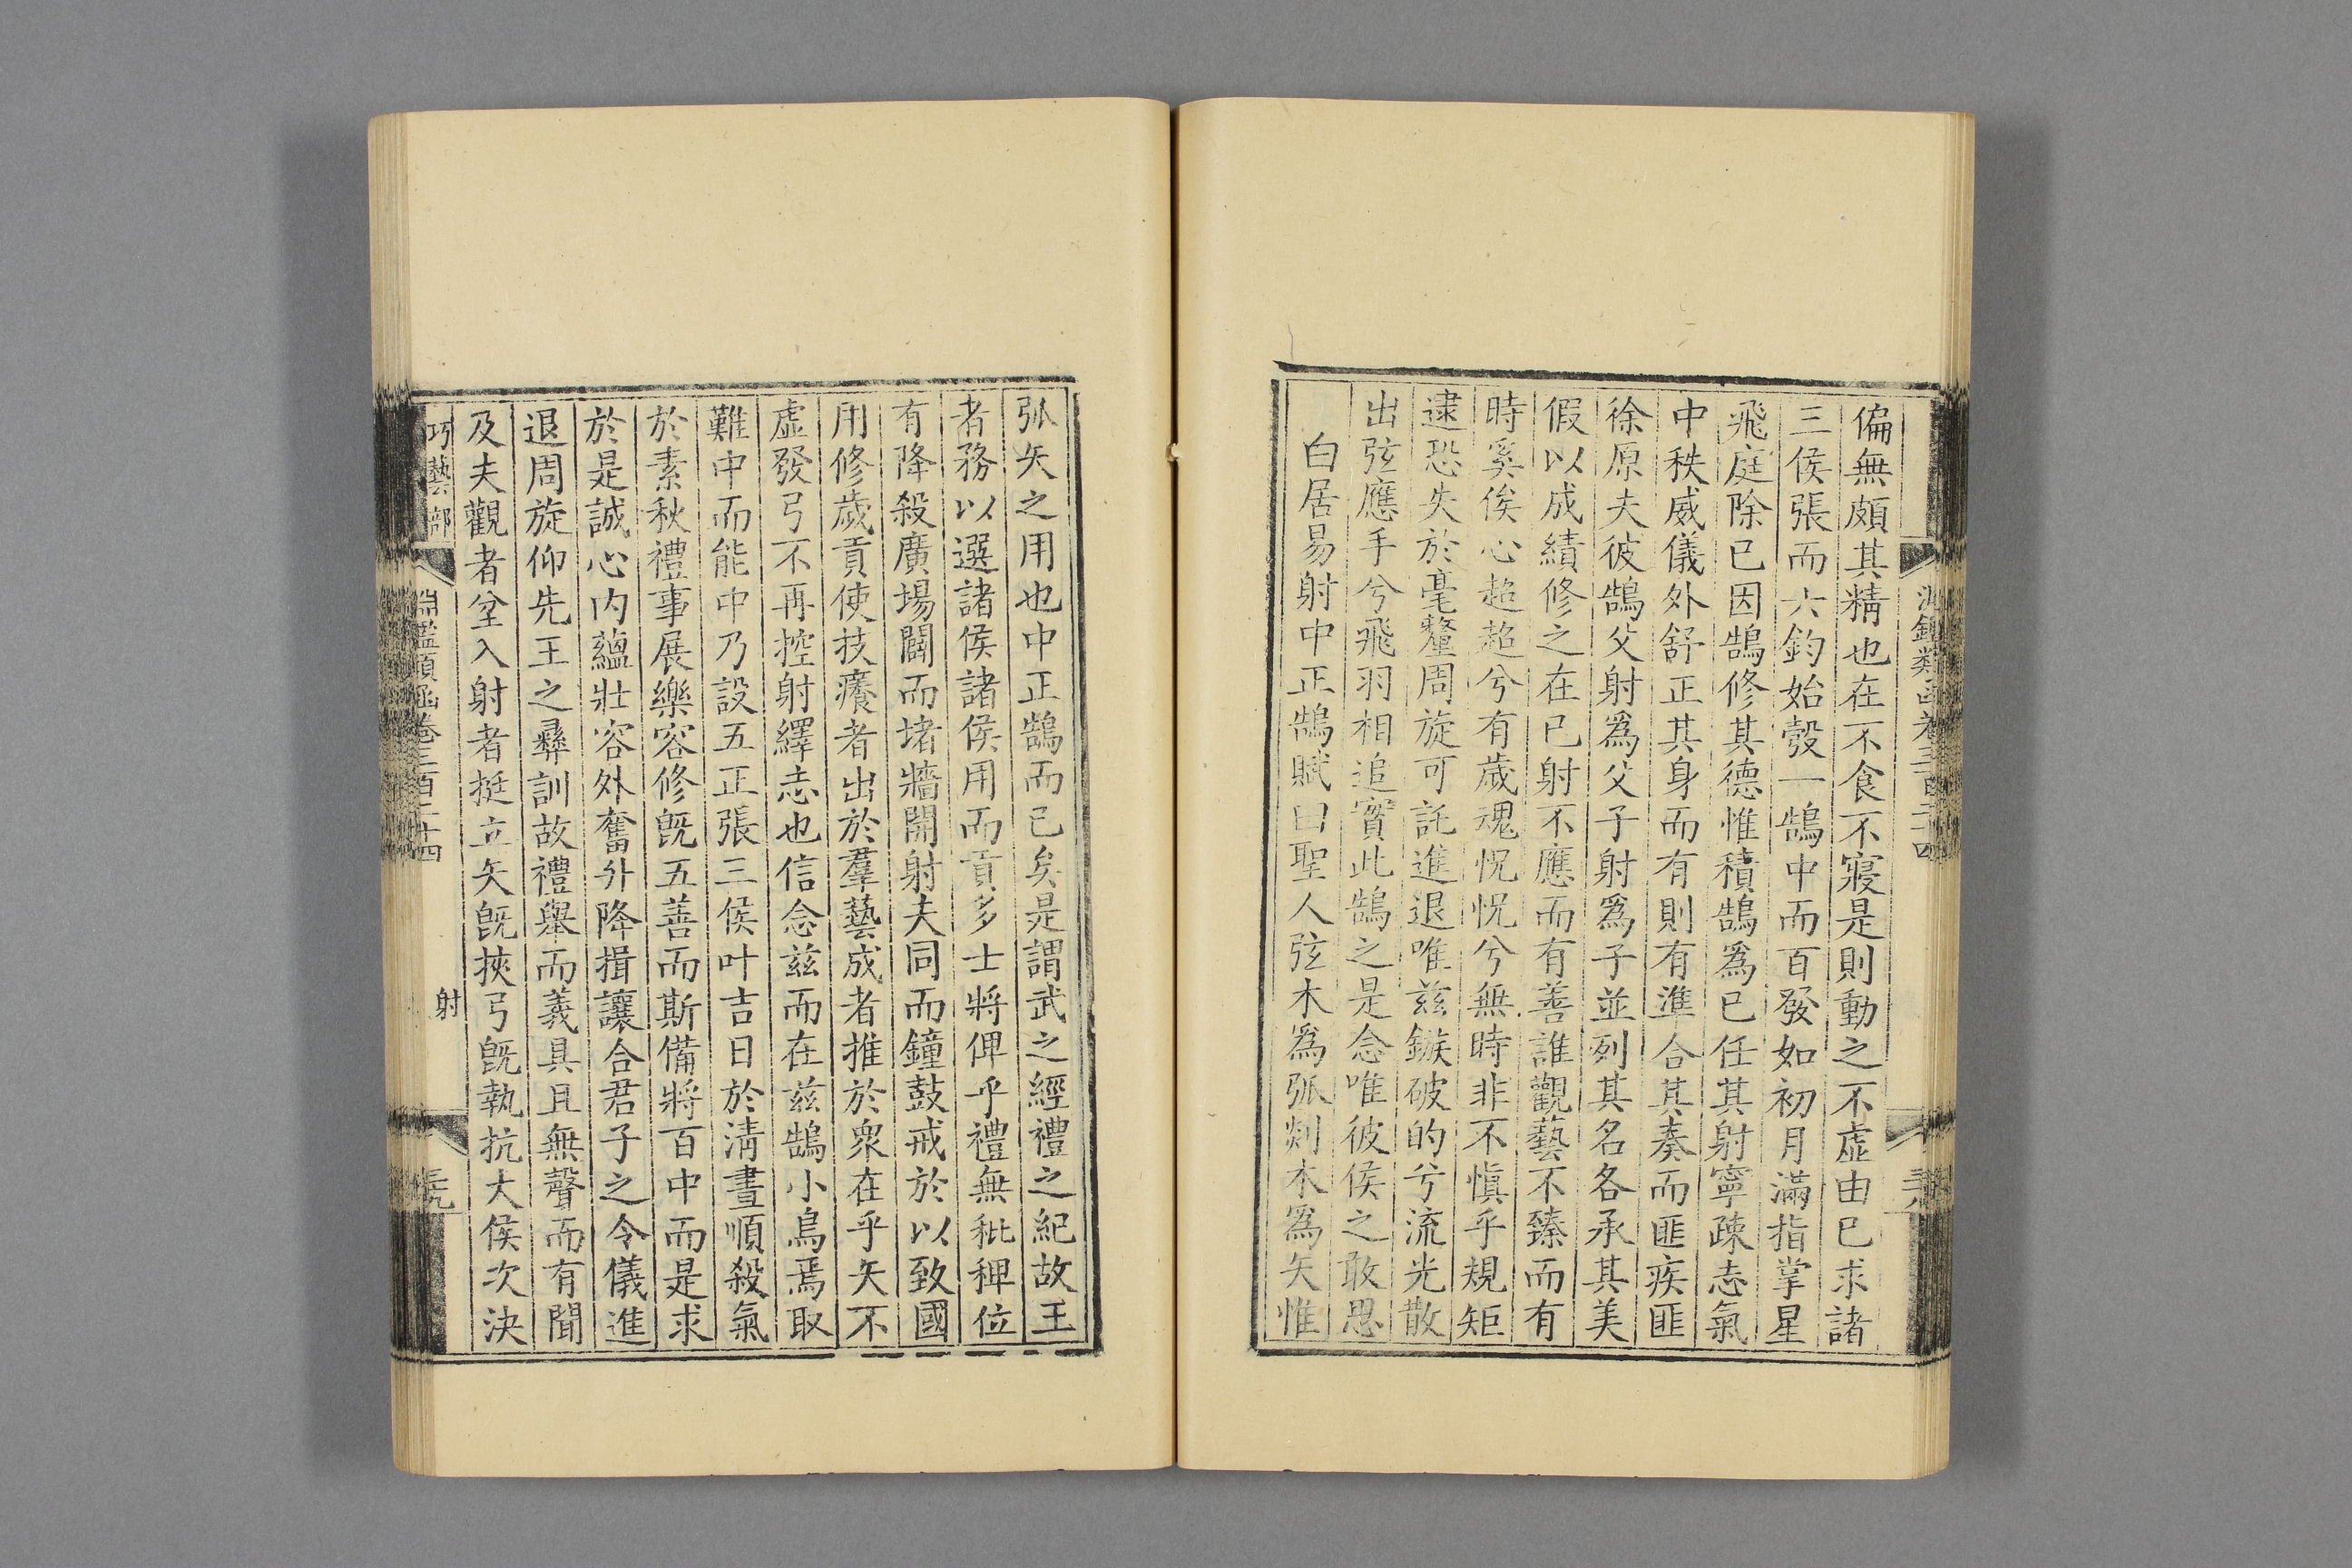 偏無頗其精也在不食不寢是則動之不虛由已求諸
三侯張而六鈞始彀一鵠中而百發如初月滿指掌星
飛庭除已因鵠修其德惟積鵠爲已任其射寧疎志氣
中秩威儀外舒正其身而有則有準合其奏而匪疾匪
徐原夫彼鵠父射爲父子射爲子並列其名各承其美
假以成績修之在已射不應而有善誰觀藝不臻而有
時奚俟心超超兮有歲魂怳怳兮無時非不愼乎規矩
逮恐失於毫釐周旋可託進退唯兹鏃破的兮流光散
出弦應手兮飛羽相追實此鵠之是念唯彼侯之敢思
白居易射中正鵠賦曰聖人弦木爲弧剡木爲矢惟
弧矢之用也中正鵠而已矣是謂武之經禮之紀故王
者務以選諸侯諸侯用而貢多士將俾乎禮無秕稗位
有降殺廣場闢而堵牆開射夫同而鐘鼓戒於以致國
用修歲貢使技癢者出於羣藝成者推於衆在乎矢不
虛發弓不再控射繹志也信念兹而在兹鵠小鳥焉取
難中而能中乃設五正張三侯叶吉日於淸晝順殺氣
於素秋禮事展樂容修旣五善而斯備將百中而是求
於是誠心内蘊壯容外奮升降揖讓合君子之令儀進
退周旋仰先王之彞訓故禮舉而義具且無聲而有聞
及夫觀者坌入射者挺立矢旣挾弓旣執抗大侯次決
巧藝部
淵鑑類函卷三百二十四
射